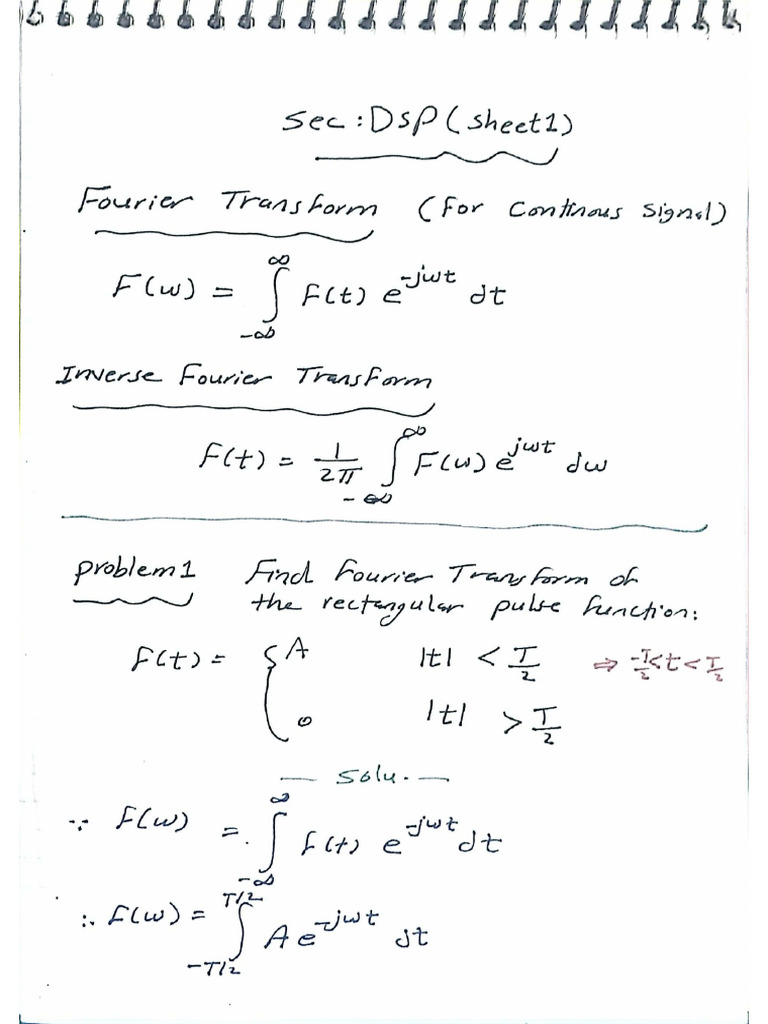 Sec: DSP (sheet1)
Fourier Transform (for Continous Signal)
F(ω) = ∫_{-∞}^{∞} F(t) e^{-jωt} dt
Inverse Fourier Transform
F(t) = 1/2π ∫_{-∞}^{∞} F(ω) e^{jωt} dω
problem1 Find Fourier Transform of
the rectangular pulse function:
F(t) = { A |t| < T/2 ⇒ -T/2 < t < T/2
0 |t| > T/2
— Solu. —
∵ F(ω) = ∫_{-∞}^{∞} f(t) e^{-jωt} dt
∴ F(ω) = ∫_{-T/2}^{T/2} A e^{-jωt} dt